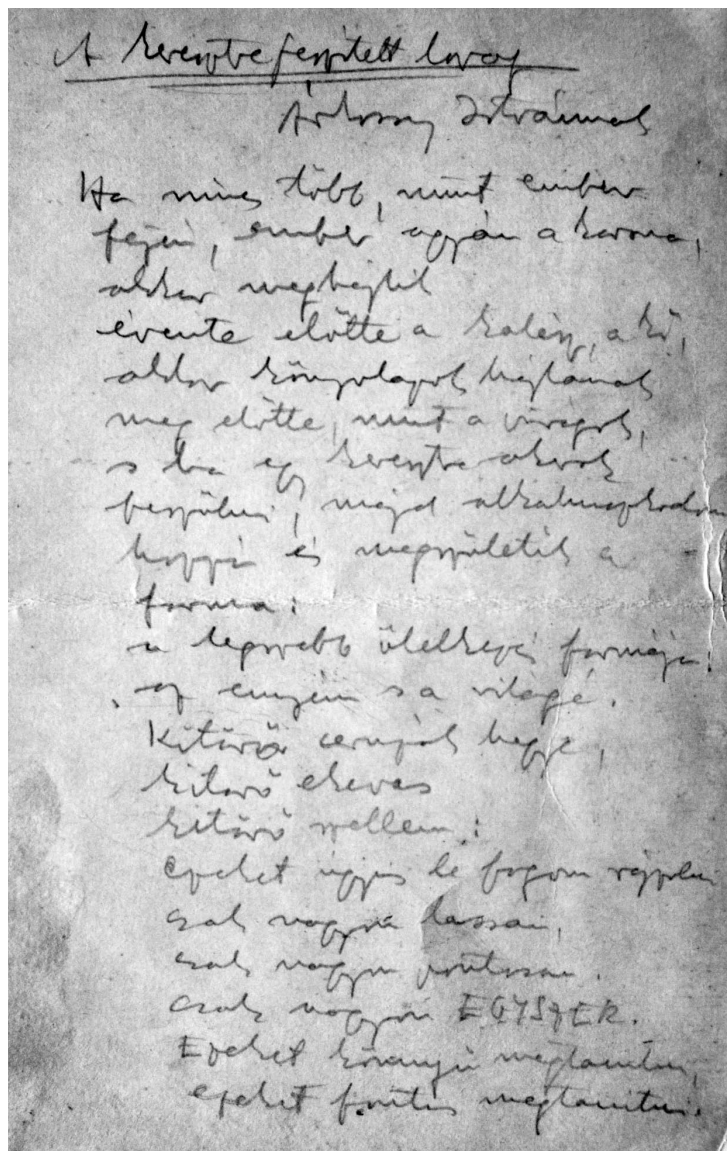 A keresztrefeszített lovag
Árkossy Istvánnak
Ha nincs több, mint ember
fején, ember agyán a korona,
akkor meghajlik
évente előtte a kalász, a kő,
akkor könyvlapok hajlanak
meg előtte, mint a virágok,
s ha egy keresztre akarok
feszülni, majd alkalmazkodom
hozzá és megszületik a
forma:
a legszebb ölelkezés formája:
az enyém s a világé.
Kitörő ceruzák hegye,
kitörő ekevas
kitörő szellem:
ezeket úgyis le fogom rajzolni
csak nagyon lassan,
csak nagyon pontosan.
csak nagyon EGYSZER.
Ezeket könnyű megtanulni,
ezeket fontos megtanulni.